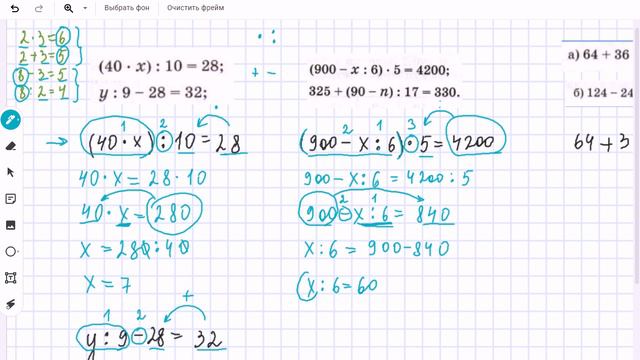 Выбрать фон Очистить фрейм
2 · 3 = 6
2 + 3 = 5
8 - 3 = 5
8 : 2 = 4
· :
+ −
(40 · x) : 10 = 28;
y : 9 − 28 = 32;
(900 − x : 6) · 5 = 4200;
325 + (90 − n) : 17 = 330.
а) 64 + 36
б) 124 − 24
1 2 ·
(40 · x) : 10 = 28
40 · x = 28 · 10
40 · x = 280
x = 280 : 40
x = 7
+
1 2
y : 9 − 28 = 32
2 1 3 :
(900 − x : 6) · 5 = 4200
900 − x : 6 = 4200 : 5
2 1
900 − x : 6 = 840
x : 6 = 900 − 840
x : 6 = 60
64 + 3